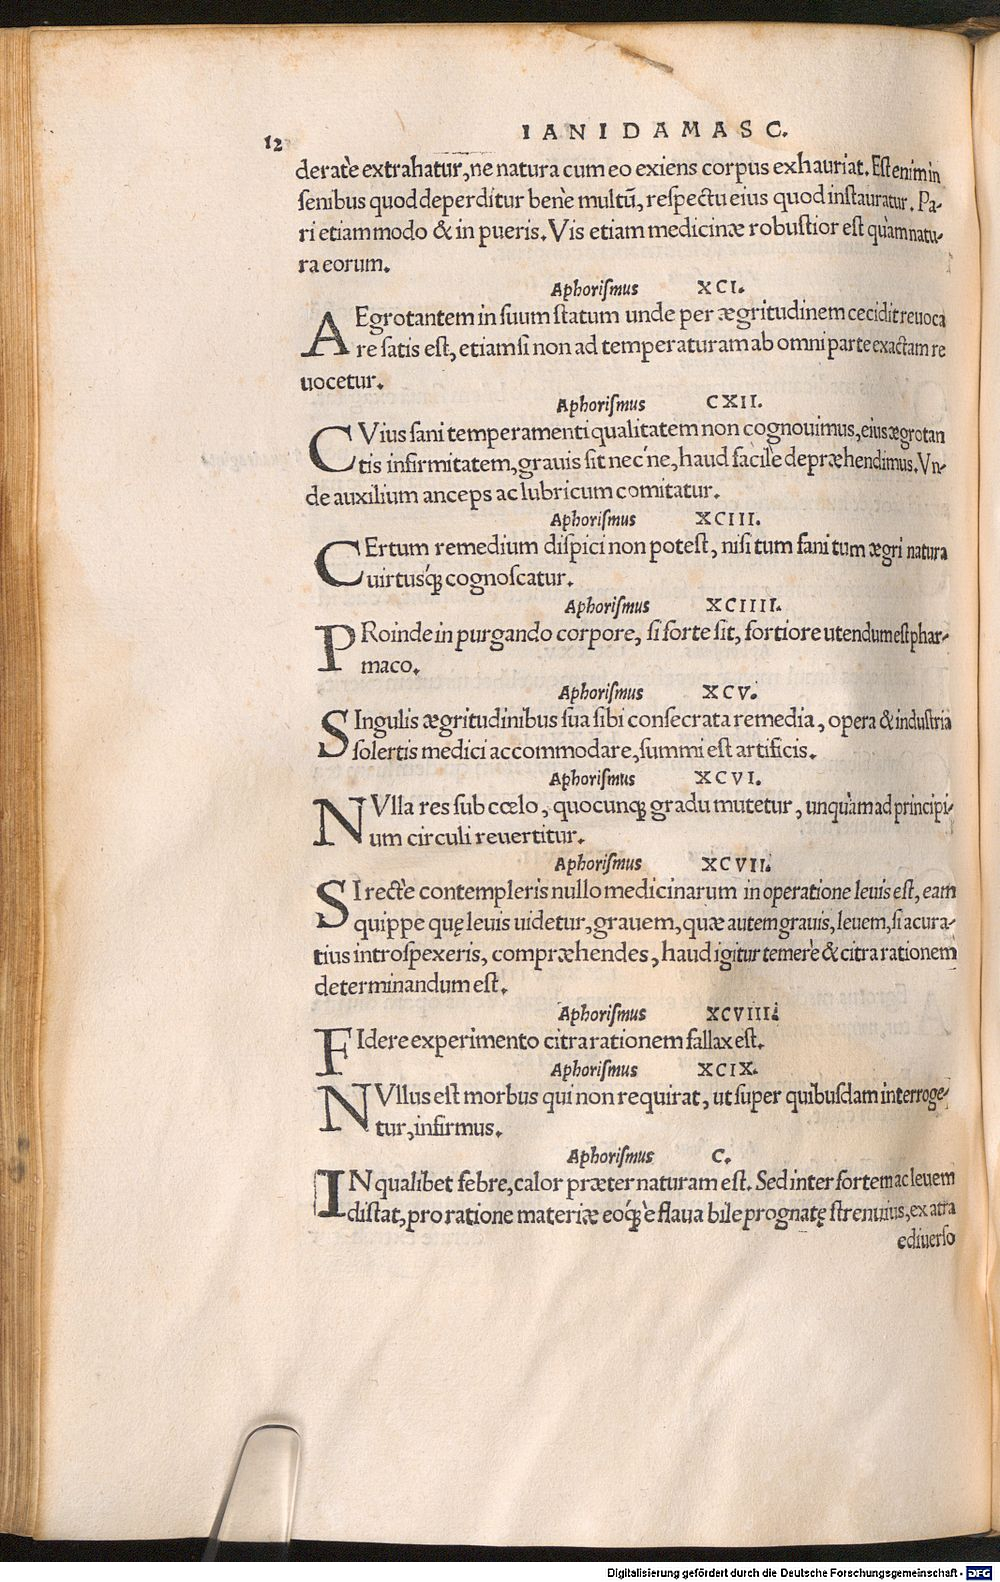 12
IANI DAMASC.
deratè extrahatur, ne natura cum eo exiens corpus exhauriat. Est enim in
ſenibus quod deperditur benè multũ, reſpectu eius quod inſtauratur. Pa-
ri etiam modo & in pueris. Vis etiam medicinæ robuſtior eſt quàm natu-
ra eorum.
Aphoriſmus XCI.
AEgrotantem in ſuum ſtatum unde per ægritudinem cecidit reuoca
re ſatis eſt, etiamſi non ad temperaturam ab omni parte exactam re
uocetur.
Aphoriſmus CXII.
CVius ſani temperamenti qualitatem non cognouimus, eius ægrotan
tis infirmitatem, grauis ſit nec'ne, haud facilè depræhendimus. Vn-
de auxilium anceps ac lubricum comitatur.
Aphoriſmus XCIII.
CErtum remedium diſpici non poteſt, niſi tum ſani tum ægri natura
uirtusq́ꝫ cognoſcatur.
Aphoriſmus XCIIII.
PRoinde in purgando corpore, ſi forte ſit, fortiore utendum eſt phar-
maco.
Aphoriſmus XCV.
SIngulis ægritudinibus ſua ſibi conſecrata remedia, opera & induſtria
ſolertis medici accommodare, ſummi eſt artificis.
Aphoriſmus XCVI.
NVlla res ſub cœlo, quocunqꝫ gradu mutetur, unquàm ad principi-
um circuli reuertitur.
Aphoriſmus XCVII.
SI rectè contempleris nullo medicinarum in operatione leuis eſt, eam
quippe quę leuis uidetur, grauem, quæ autem grauis, leuem, ſi acura-
tius introſpexeris, compræhendes, haud igitur temerè & citra rationem
determinandum eſt.
Aphoriſmus XCVIII.
FIdere experimento citra rationem fallax eſt.
Aphoriſmus XCIX.
NVllus eſt morbus qui non requirat, ut ſuper quibuſdam interroge-
tur, infirmus.
Aphoriſmus C.
IN qualibet febre, calor præter naturam eſt. Sed inter fortem ac leuem
diſtat, pro ratione materiæ eoq́ꝫ è flaua bile prognatę ſtrenuius, ex atra
ediuerſo
Digitalisierung gefördert durch die Deutsche Forschungsgemeinschaft - DFG